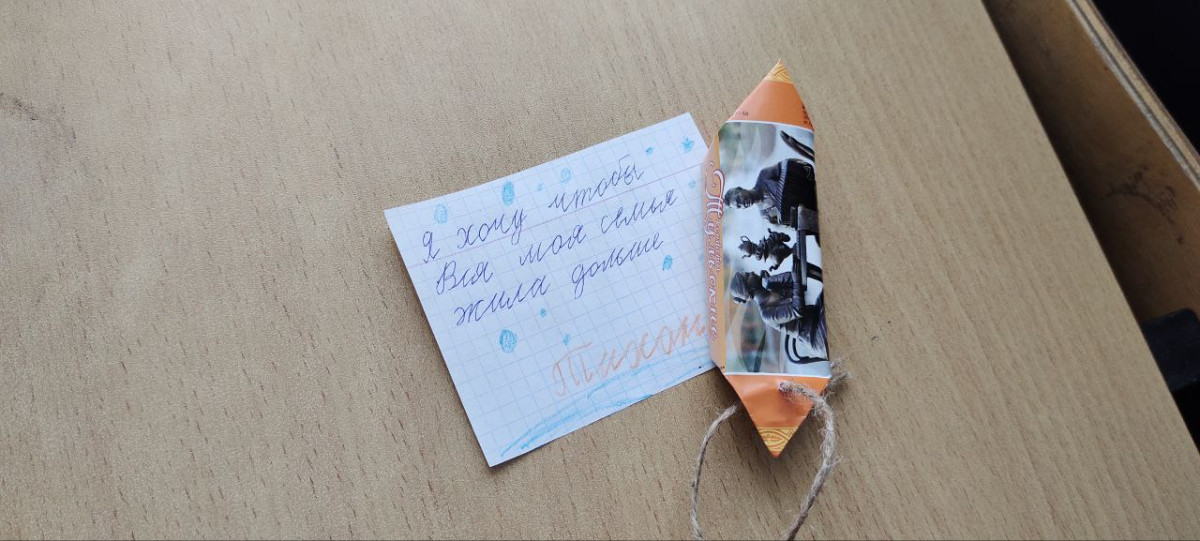 Я хочу чтобы
Вся моя семья
жила дольше
Тихон